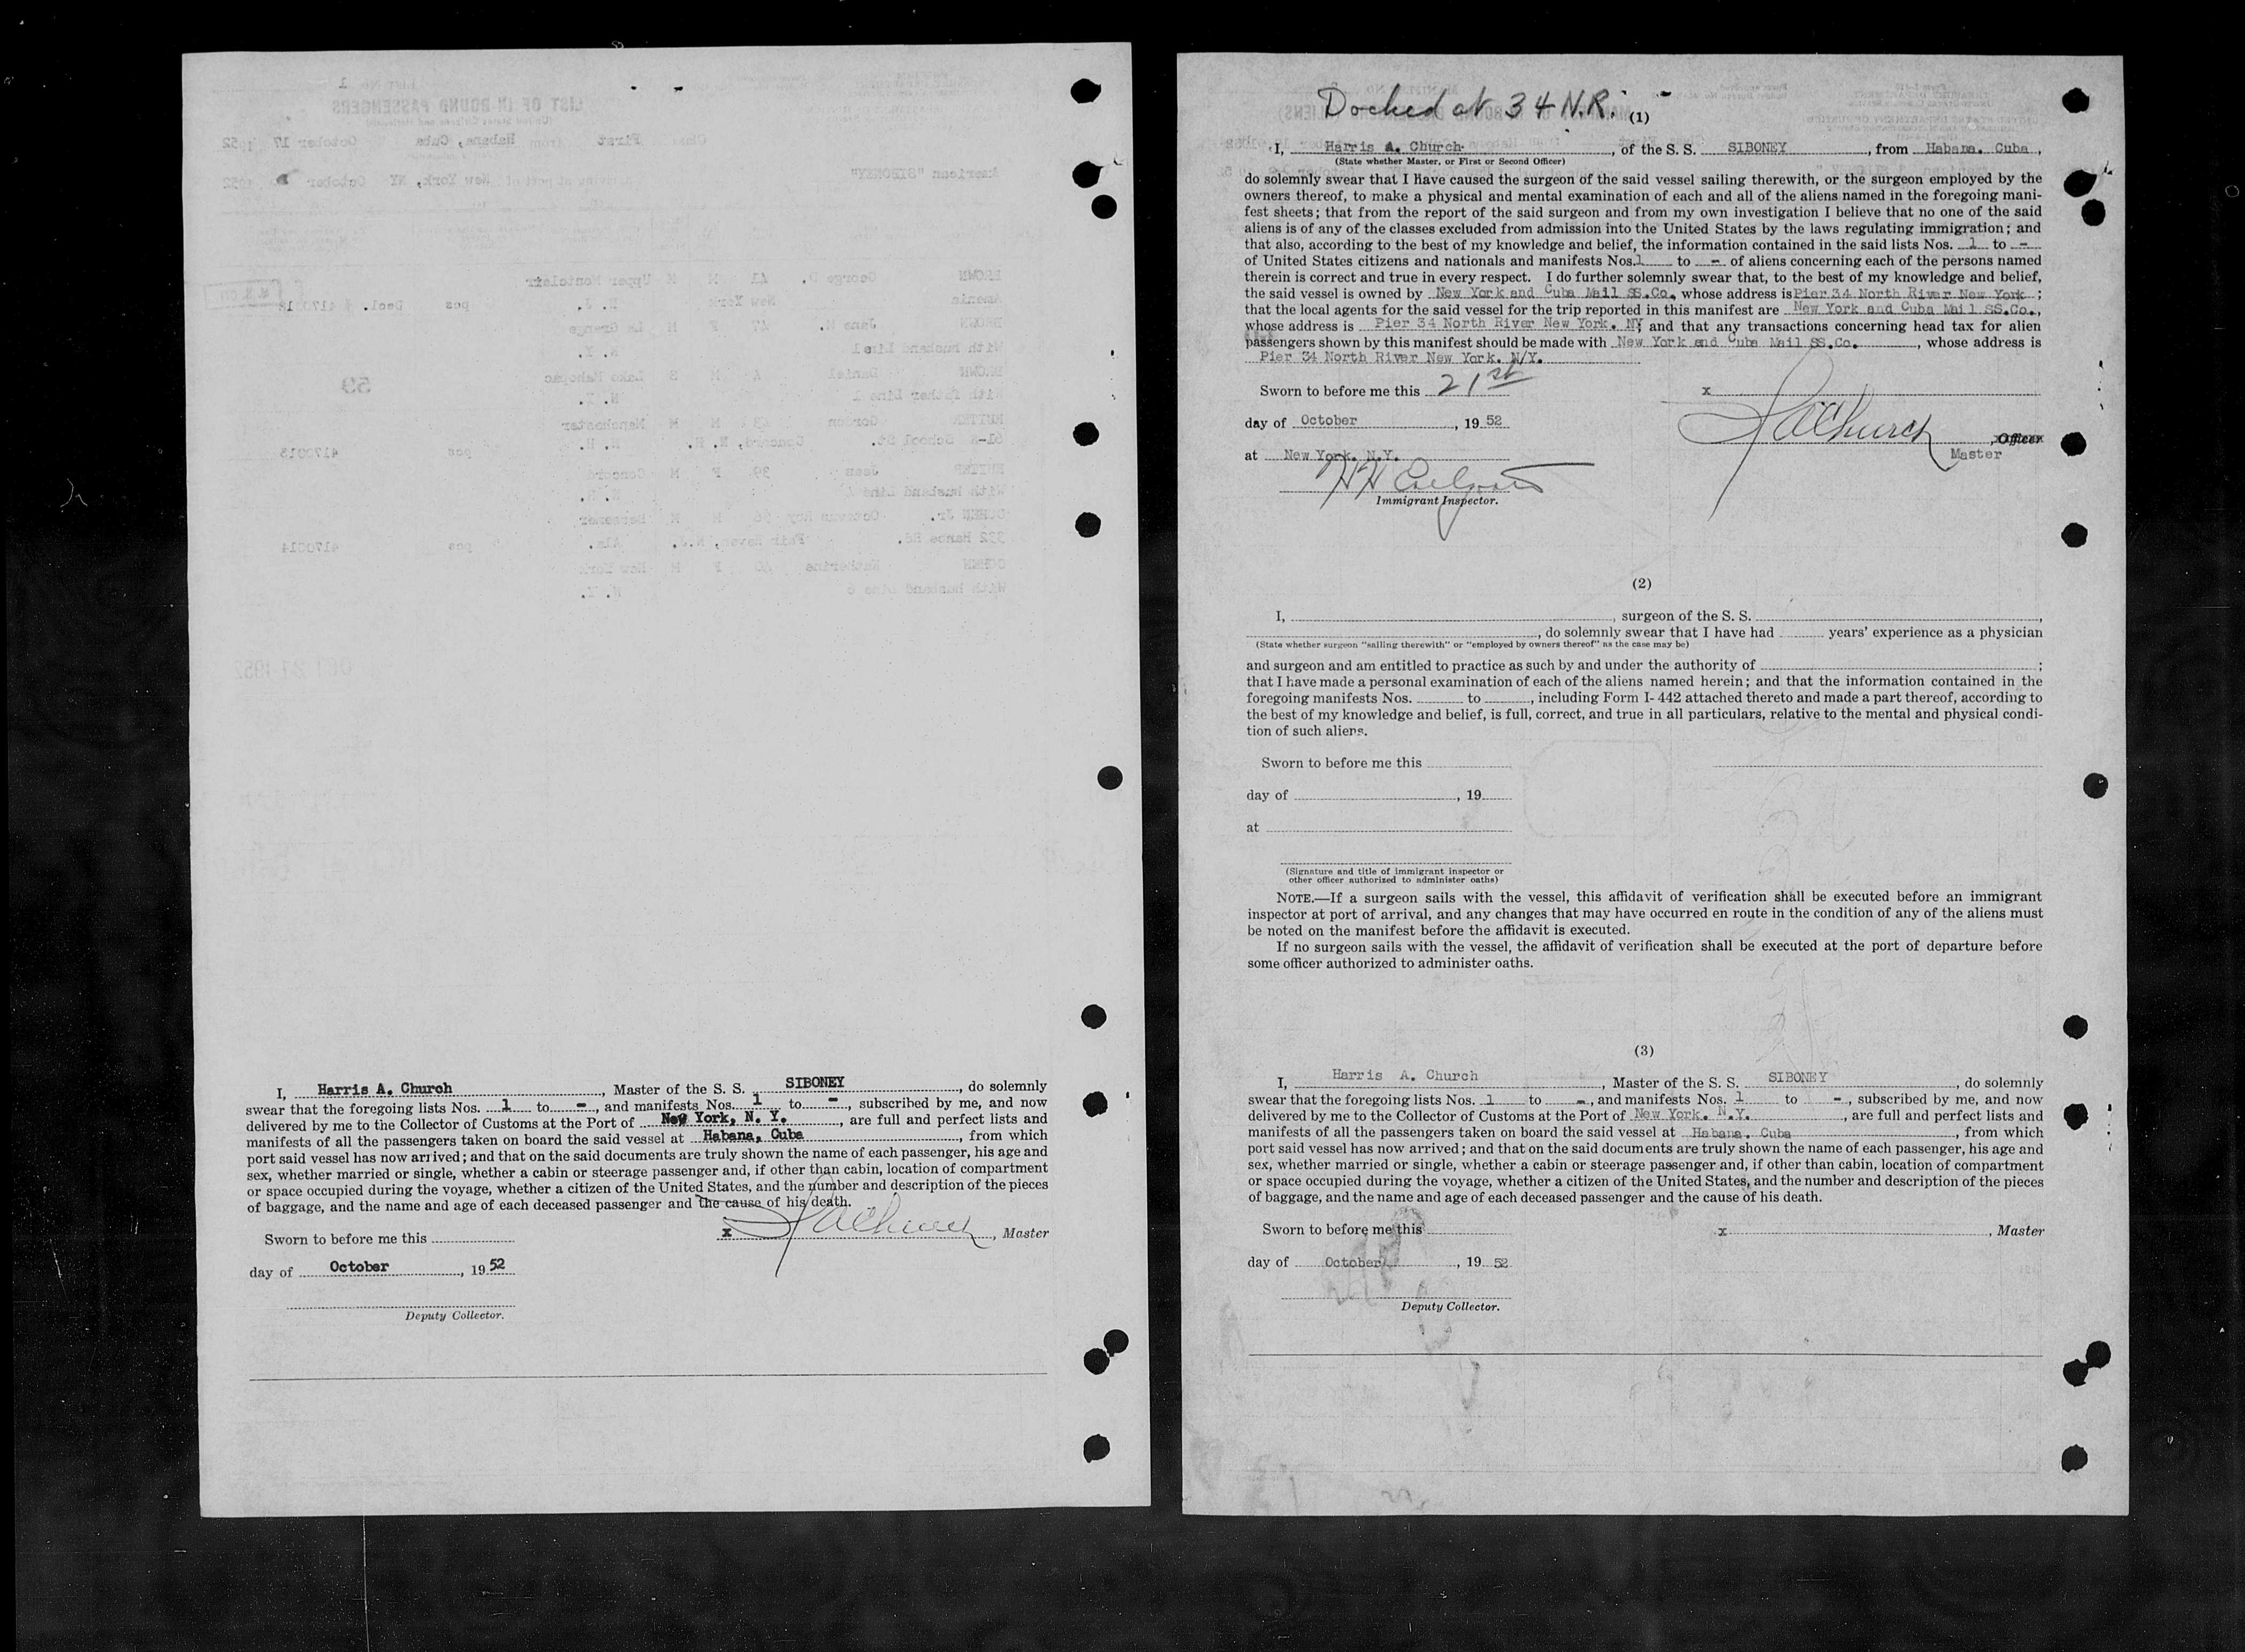 I, Harris A. Church, Master of the S. S. SIBONEY, do solemnly
swear that the foregoing lists Nos. 1 to -, and manifests Nos. 1 to -, subscribed by me, and now
delivered by me to the Collector of Customs at the Port of New York, N. Y., are full and perfect lists and
manifests of all the passengers taken on board the said vessel at Habana, Cuba, from which
port said vessel has now arrived; and that on the said documents are truly shown the name of each passenger, his age and
sex, whether married or single, whether a cabin or steerage passenger and, if other than cabin, location of compartment
or space occupied during the voyage, whether a citizen of the United States, and the number and description of the pieces
of baggage, and the name and age of each deceased passenger and the cause of his death.
x HAChurch, Master
Sworn to before me this
day of October, 1952
Deputy Collector.
Docked at 34 N.R.
(1)
I, Harris A. Church, of the S. S. SIBONEY, from Habana. Cuba,
(State whether Master, or First or Second Officer)
do solemnly swear that I have caused the surgeon of the said vessel sailing therewith, or the surgeon employed by the
owners thereof, to make a physical and mental examination of each and all of the aliens named in the foregoing mani-
fest sheets; that from the report of the said surgeon and from my own investigation I believe that no one of the said
aliens is of any of the classes excluded from admission into the United States by the laws regulating immigration; and
that also, according to the best of my knowledge and belief, the information contained in the said lists Nos. 1 to -
of United States citizens and nationals and manifests Nos. 1 to - of aliens concerning each of the persons named
therein is correct and true in every respect. I do further solemnly swear that, to the best of my knowledge and belief,
the said vessel is owned by New York and Cuba Mail SS.Co, whose address is Pier 34 North River New York;
that the local agents for the said vessel for the trip reported in this manifest are New York and Cuba Mail SS.Co.,
whose address is Pier 34 North River New York. NY; and that any transactions concerning head tax for alien
passengers shown by this manifest should be made with New York and Cuba Mail SS.Co., whose address is
Pier 34 North River New York. N/Y.
Sworn to before me this 21st
x
day of October, 1952
HAChurch, Officer
at New York. N.Y.
Master
Immigrant Inspector.
(2)
I, , surgeon of the S. S. ,
, do solemnly swear that I have had years' experience as a physician
(State whether surgeon "sailing therewith" or "employed by owners thereof" as the case may be)
and surgeon and am entitled to practice as such by and under the authority of ;
that I have made a personal examination of each of the aliens named herein; and that the information contained in the
foregoing manifests Nos. to , including Form I-442 attached thereto and made a part thereof, according to
the best of my knowledge and belief, is full, correct, and true in all particulars, relative to the mental and physical condi-
tion of such aliens.
Sworn to before me this
day of , 19
at
(Signature and title of immigrant inspector or
other officer authorized to administer oaths)
NOTE.—If a surgeon sails with the vessel, this affidavit of verification shall be executed before an immigrant
inspector at port of arrival, and any changes that may have occurred en route in the condition of any of the aliens must
be noted on the manifest before the affidavit is executed.
If no surgeon sails with the vessel, the affidavit of verification shall be executed at the port of departure before
some officer authorized to administer oaths.
(3)
I, Harris A. Church, Master of the S. S. SIBONEY, do solemnly
swear that the foregoing lists Nos. 1 to -, and manifests Nos. 1 to -, subscribed by me, and now
delivered by me to the Collector of Customs at the Port of New York. N.Y., are full and perfect lists and
manifests of all the passengers taken on board the said vessel at Habana. Cuba, from which
port said vessel has now arrived; and that on the said documents are truly shown the name of each passenger, his age and
sex, whether married or single, whether a cabin or steerage passenger and, if other than cabin, location of compartment
or space occupied during the voyage, whether a citizen of the United States, and the number and description of the pieces
of baggage, and the name and age of each deceased passenger and the cause of his death.
Sworn to before me this
x , Master
day of October, 19 52
Deputy Collector.